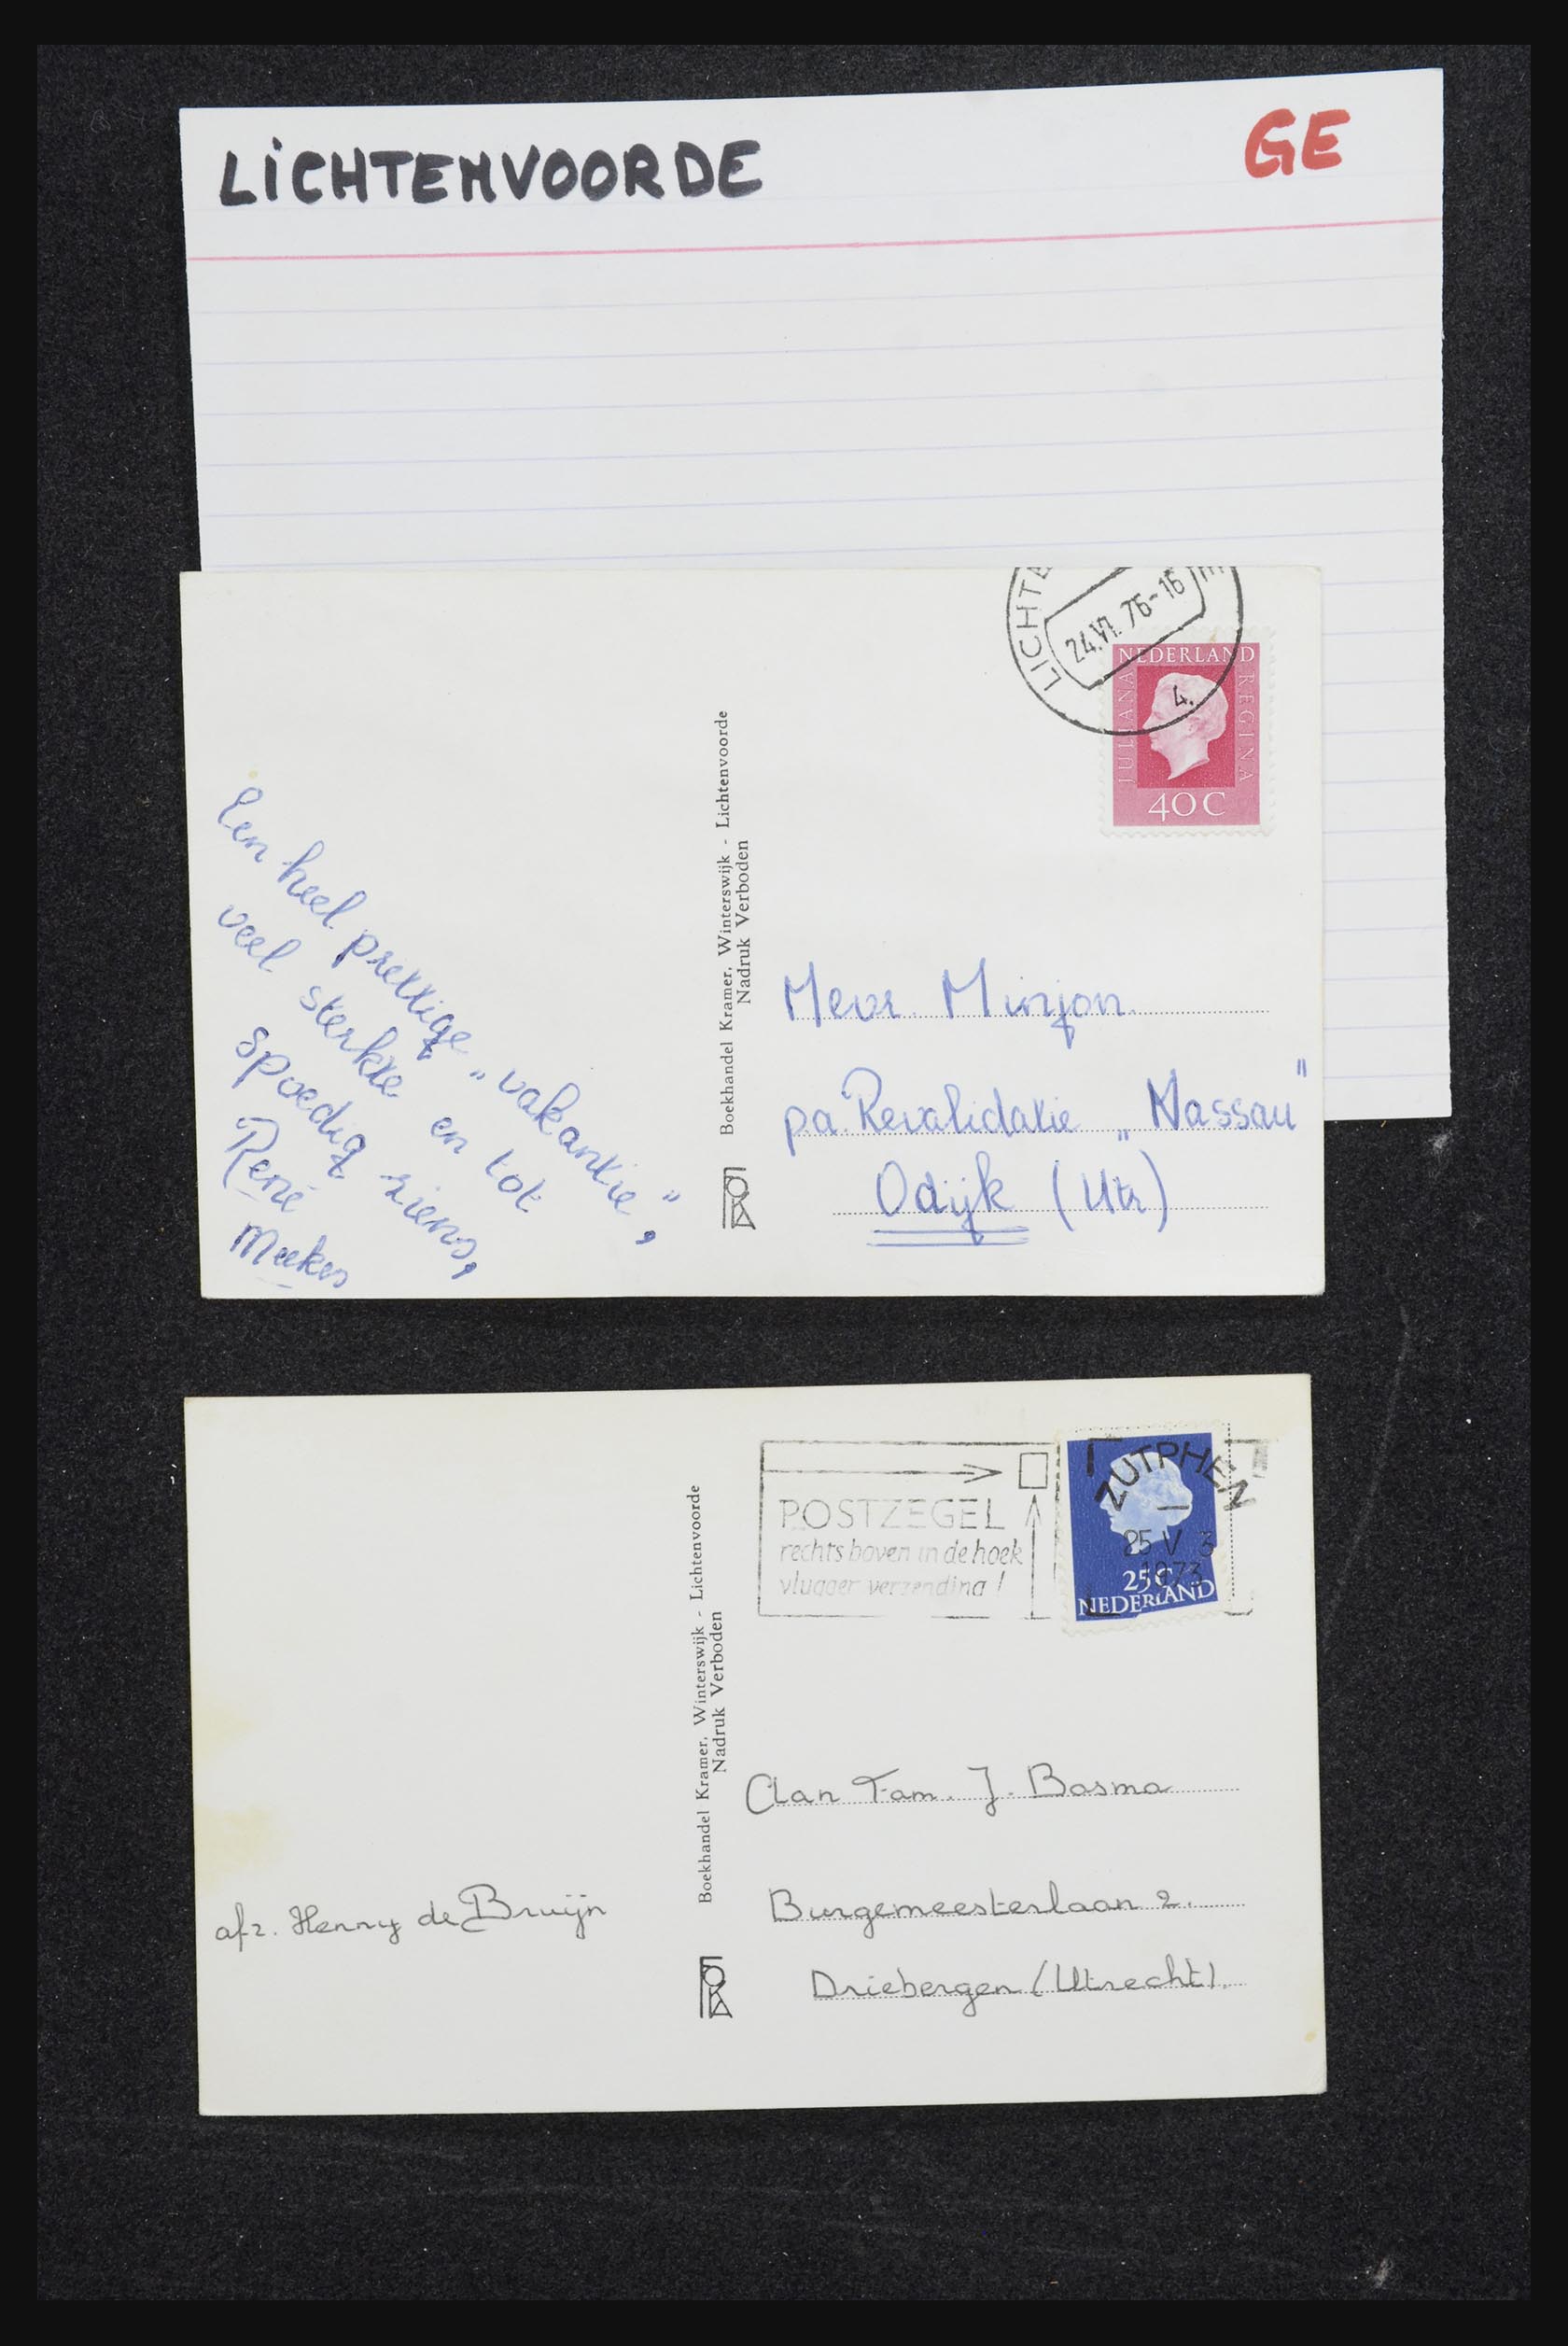 LiCHTENVOORDE
GE
LICHTE
24.VI.76-16
4.
NEDERLAND
JULIANA
REGINA
40 C
Een heel prettige „vakantie”,
veel sterkte en tot
spoedig ziens,
René
Meekes
Boekhandel Kramer, Winterswijk - Lichtenvoorde
Nadruk Verboden
FOKA
Mevr. Minjon
pa. Revalidatie „Nassau”
Odijk (Utr)
POSTZEGEL
rechts boven in de hoek
vlugger verzending!
ZUTPHEN
25 V 3
1973
25 C
NEDERLAND
Boekhandel Kramer, Winterswijk - Lichtenvoorde
Nadruk Verboden
FOKA
Aan Fam. J. Bosma
Burgemeesterlaan 2.
Driebergen (Utrecht).
afz. Henny de Bruijn